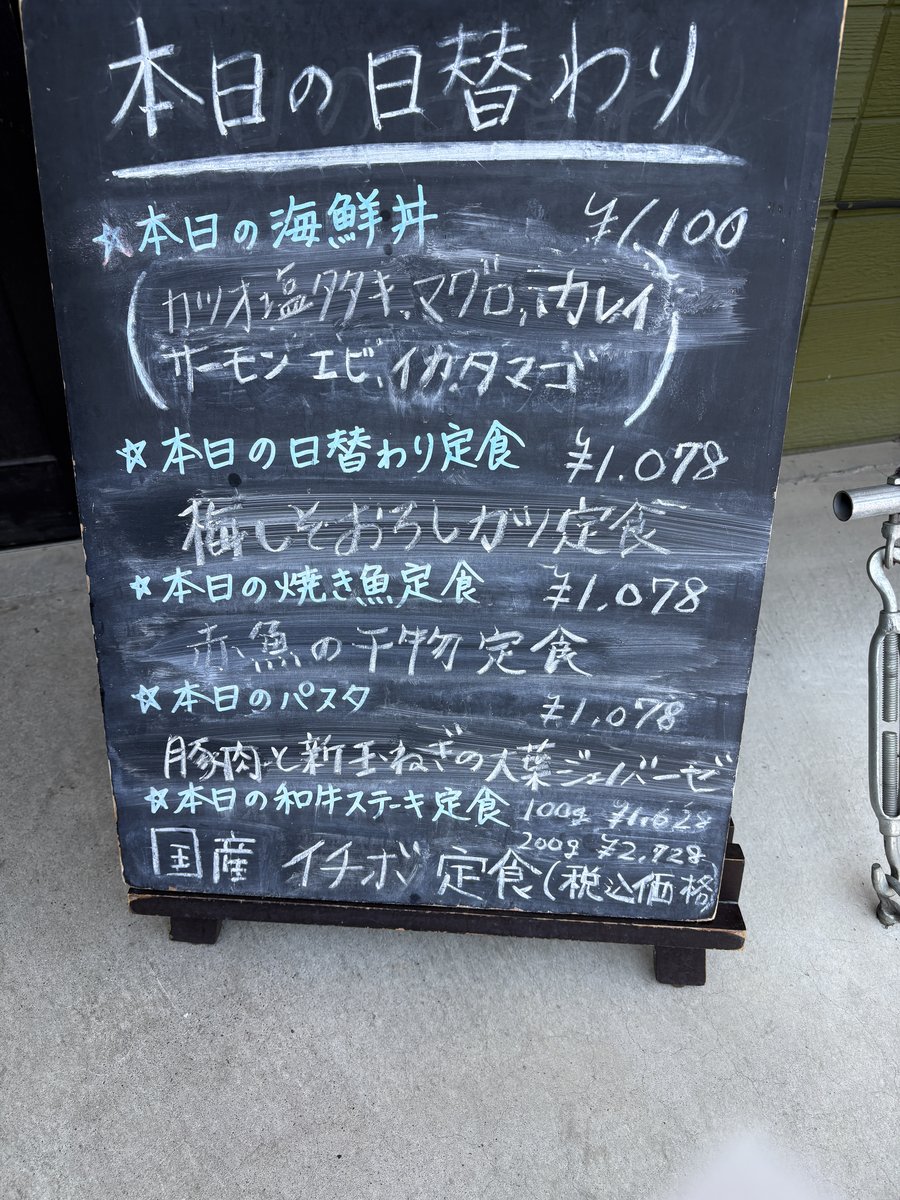 本日の日替わり
☆本日の海鮮丼 ¥1,100
(カツオ塩タタキ、マグロ、カレイ
サーモン、エビ、イカ、タマゴ)
☆本日の日替わり定食 ¥1,078
梅しそおろしカツ定食
☆本日の焼き魚定食 ¥1,078
赤魚の干物定食
☆本日のパスタ ¥1,078
豚肉と新玉ねぎの大葉ジェノバーゼ
☆本日の和牛ステーキ定食 100g ¥1,628
200g ¥2,728
国産 イチボ 定食(税込価格